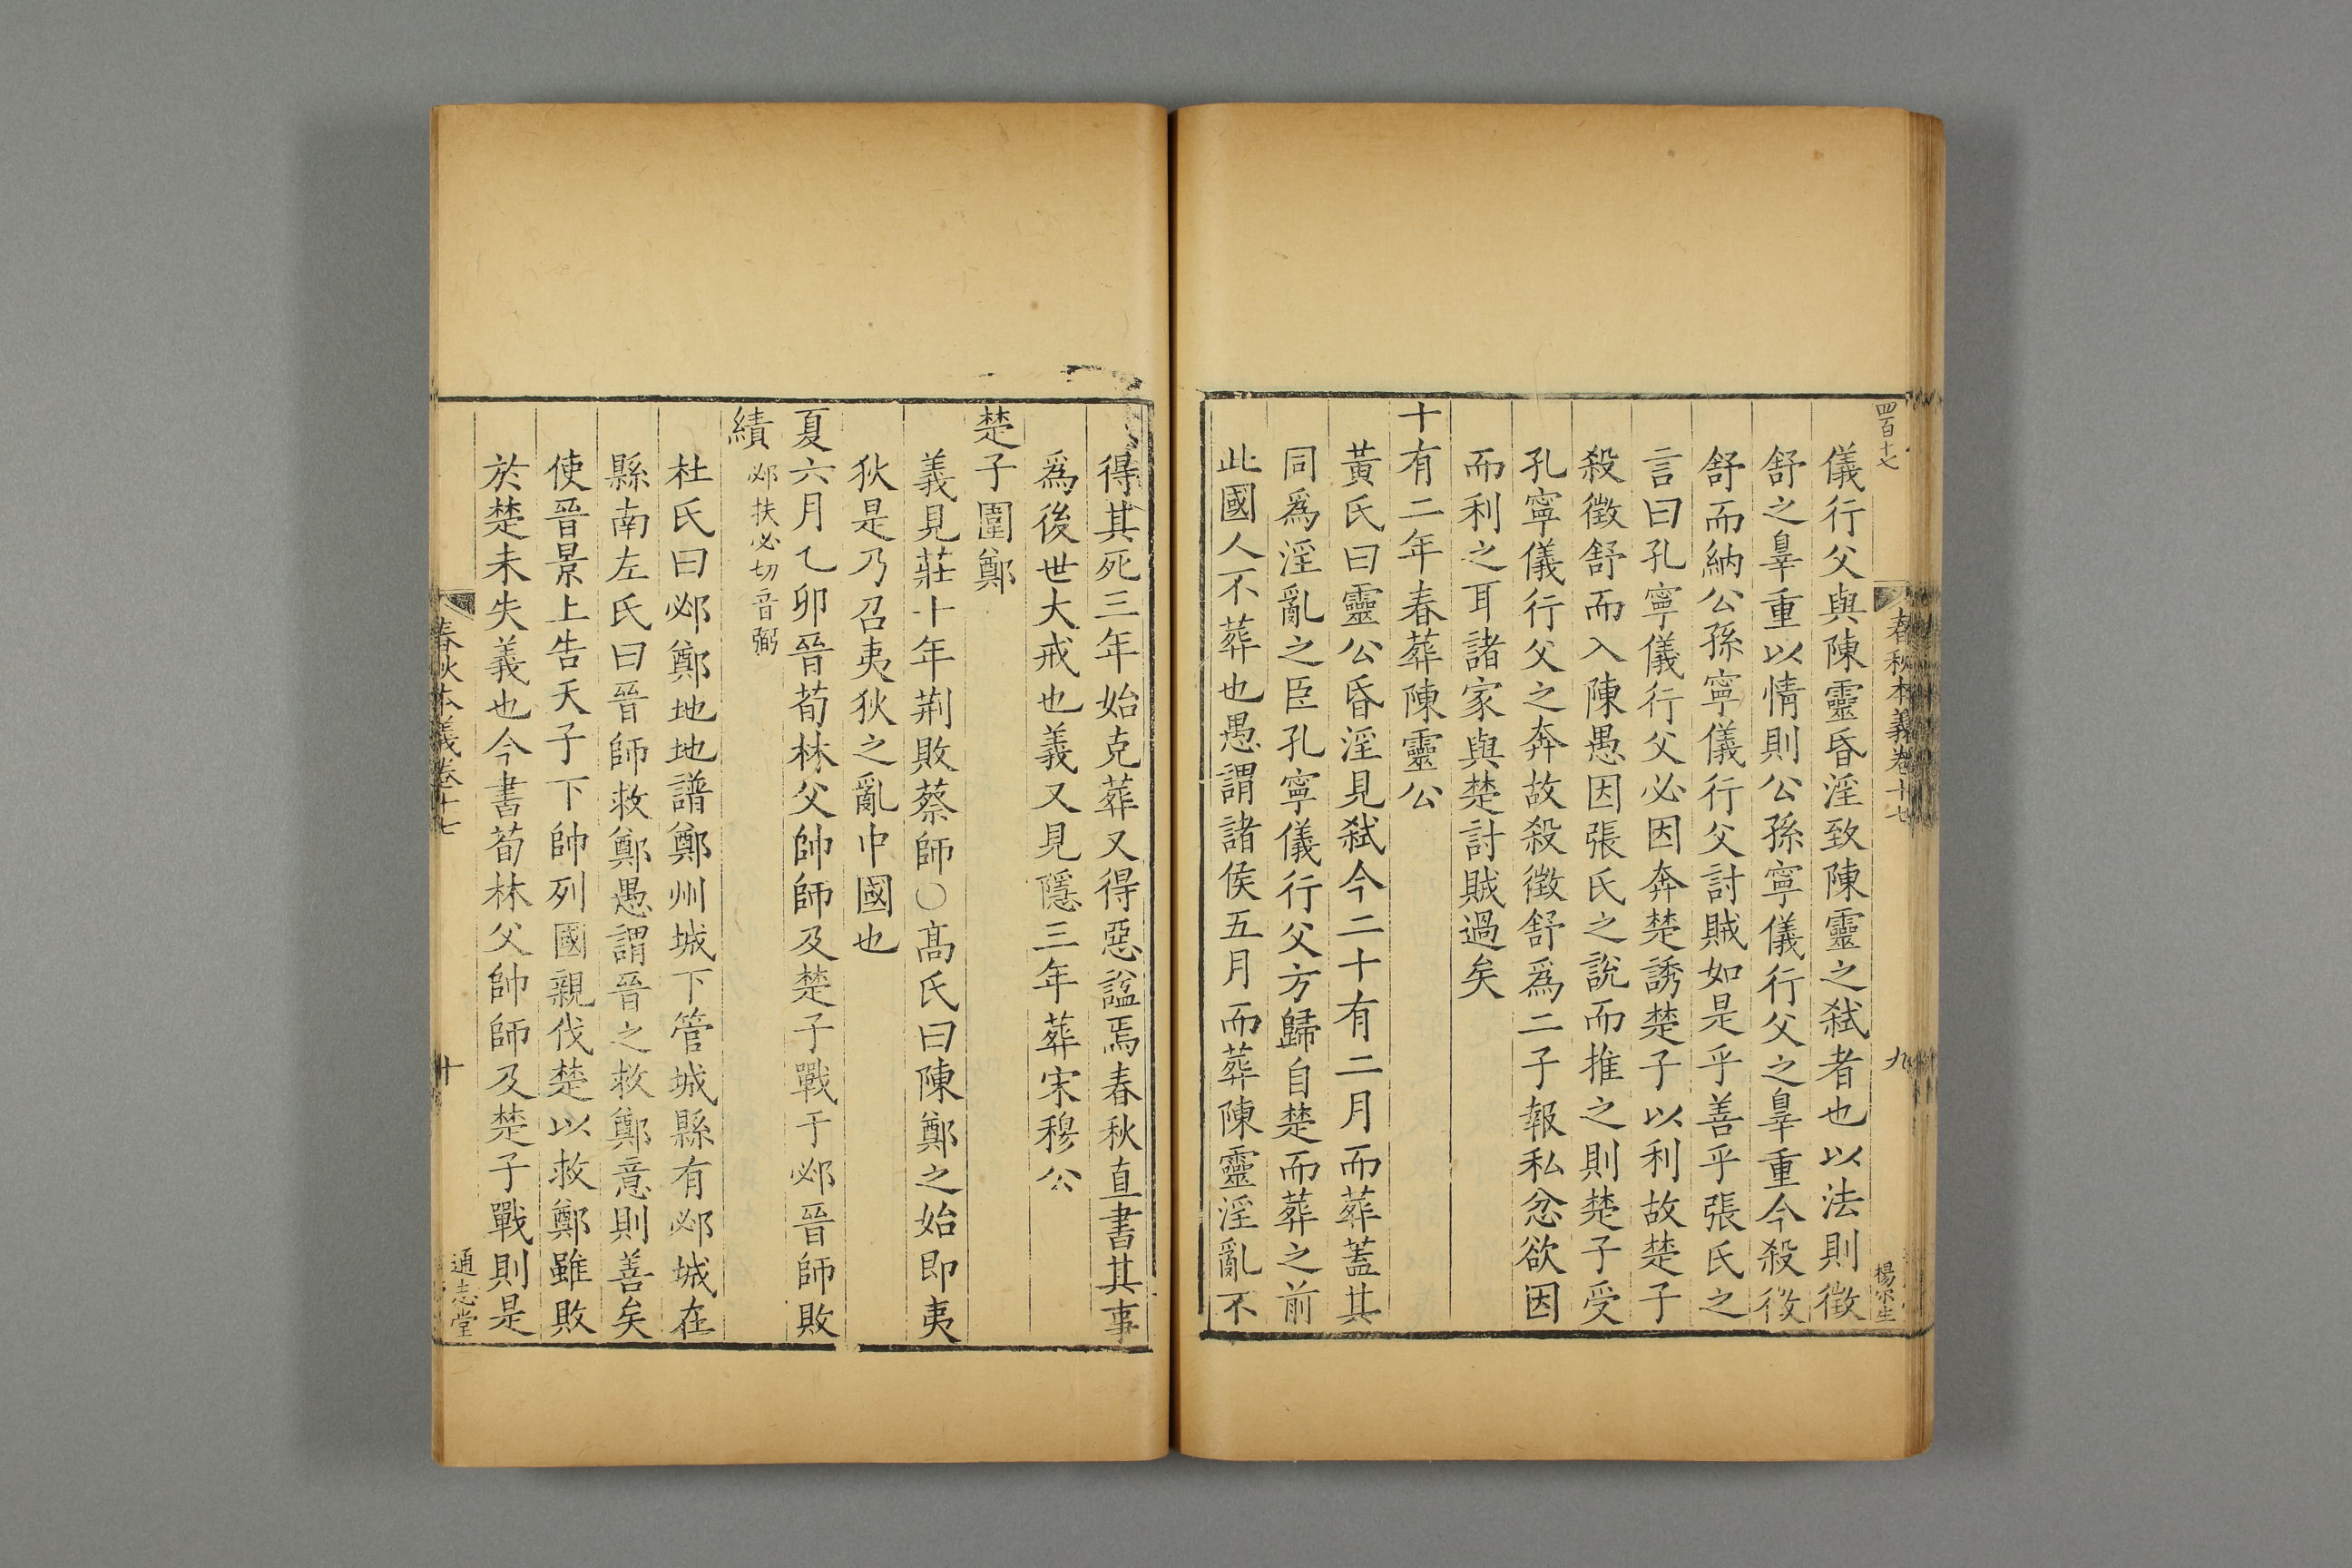 四百十七
春秋本義卷十七
九
楊宗生
儀行父與陳靈昏淫致陳靈之弑者也以法則徵
舒之辠重以情則公孫寧儀行父之辠重今殺徴
舒而納公孫寧儀行父討賊如是乎善乎張氏之
言曰孔寧儀行父必因奔楚誘楚子以利故楚子
殺徵舒而入陳愚因張氏之說而推之則楚子受
孔寧儀行父之奔故殺徵舒爲二子報私忿欲因
而利之耳諸家與楚討賊過矣
十有二年春葬陳靈公
黃氏曰靈公昏淫見弑今二十有二月而葬蓋其
同爲淫亂之臣孔寧儀行父方歸自楚而葬之前
此國人不葬也愚謂諸侯五月而葬陳靈淫亂不
得其死三年始克葬又得惡諡焉春秋直書其事
爲後世大戒也義又見隱三年葬宋穆公
楚子圍鄭
義見莊十年荆敗蔡師○髙氏曰陳鄭之始即夷
狄是乃召夷狄之亂中國也
夏六月乙卯晉荀林父帥師及楚子戰于邲晉師敗
績邲扶必切音弼
杜氏曰邲鄭地地譜鄭州城下管城縣有邲城在
縣南左氏曰晉師救鄭愚謂晉之救鄭意則善矣
使晉景上告天子下帥列國親伐楚以救鄭雖敗
於楚未失義也今書荀林父帥師及楚子戰則是
春秋本義卷十七
十
通志堂